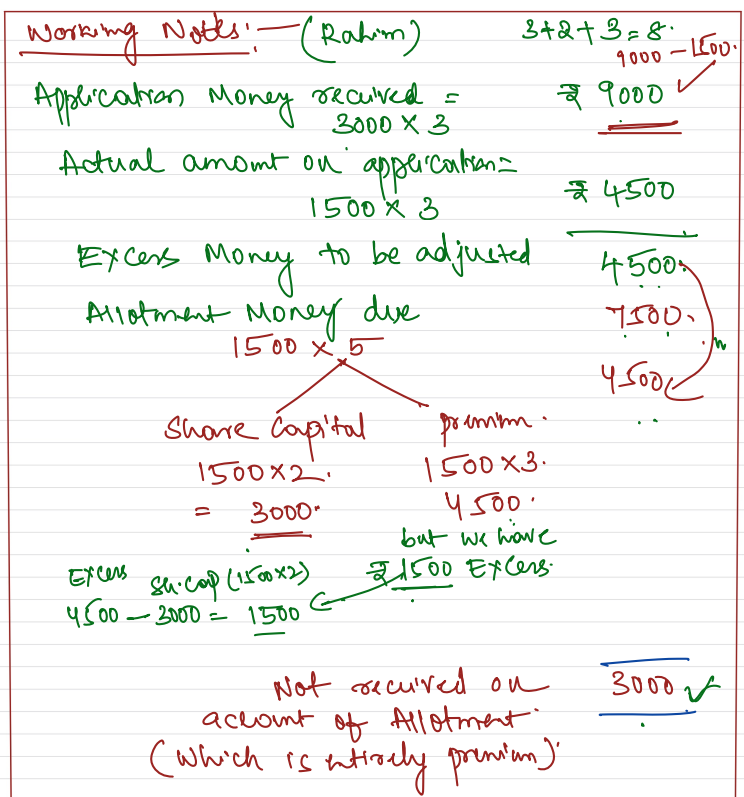 Working Notes:- (Rahim) 3+2+3=8.
9000 - 1500.
Application Money received = ₹ 9000
3000 x 3
Actual amount on application =
1500 x 3 ₹ 4500
Excess Money to be adjusted 4500.
Allotment Money due 7500.
1500 x 5
4500
Share Capital premium.
1500x2. 1500x3.
= 3000. 4500.
but we have
Excess Sh. cap (1500x2) ₹1500 Excess.
4500 - 3000 = 1500
Not received on 3000
account of Allotment.
(Which is entirely premium).